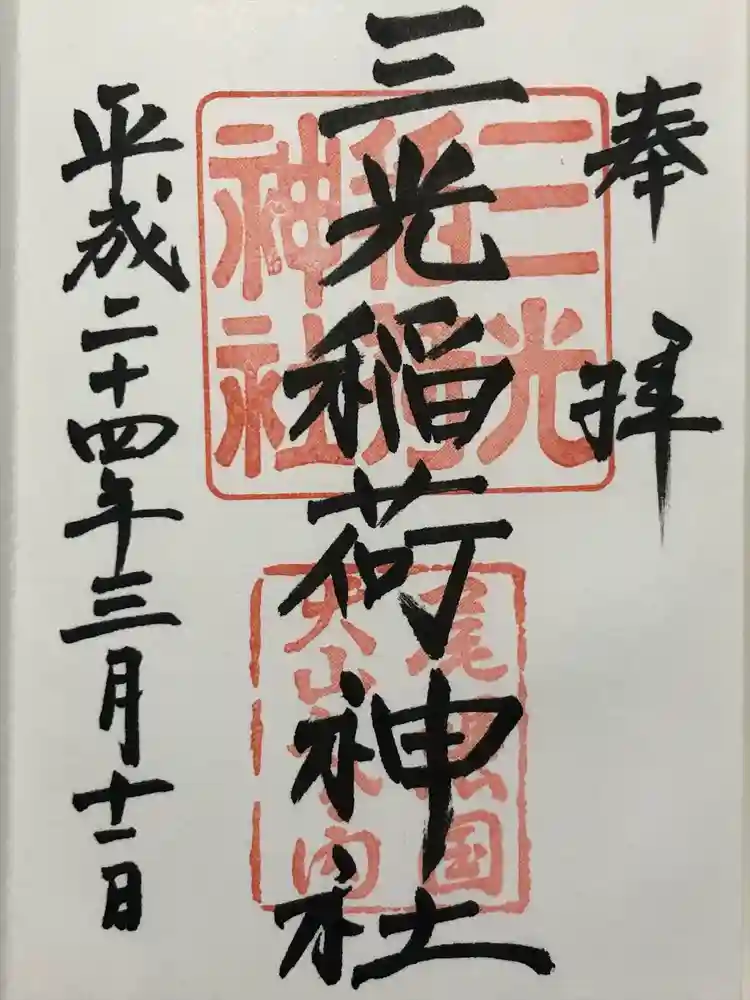 奉拝
三光稲荷神社
平成二十四年三月十一日
三光
稲荷
神社
尾張国
犬山城内